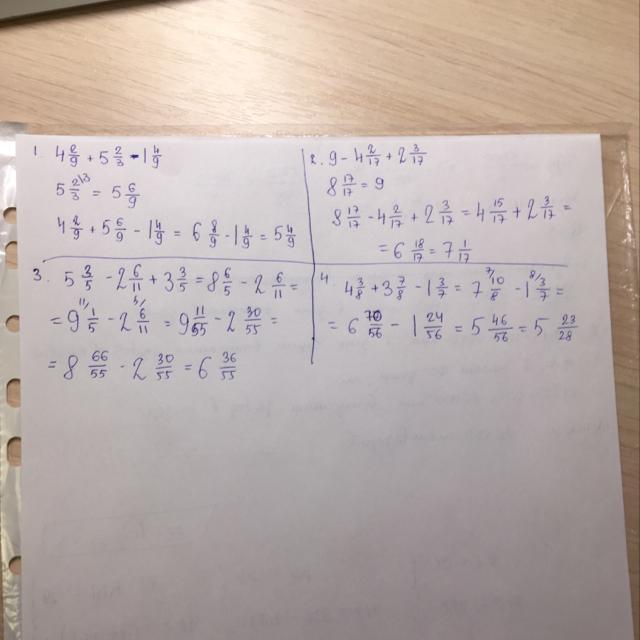 1. 4 2/9 + 5 2/3 - 1 4/9
5 2/3 \3 = 5 6/9
4 2/9 + 5 6/9 - 1 4/9 = 6 8/9 - 1 4/9 = 5 4/9
2. 9 - 4 2/17 + 2 3/17
8 17/17 = 9
8 17/17 - 4 2/17 + 2 3/17 = 4 15/17 + 2 3/17 =
= 6 18/17 = 7 1/17
3. 5 3/5 - 2 6/11 + 3 3/5 = 8 6/5 - 2 6/11 =
= 9 11/ 1/5 - 2 5/ 6/11 = 9 11/55 - 2 30/55 =
= 8 66/55 - 2 30/55 = 6 36/55
4. 4 3/8 + 3 7/8 - 1 3/7 = 7 7/ 10/8 - 1 8/ 3/7 =
= 6 70/56 - 1 24/56 = 5 46/56 = 5 23/28